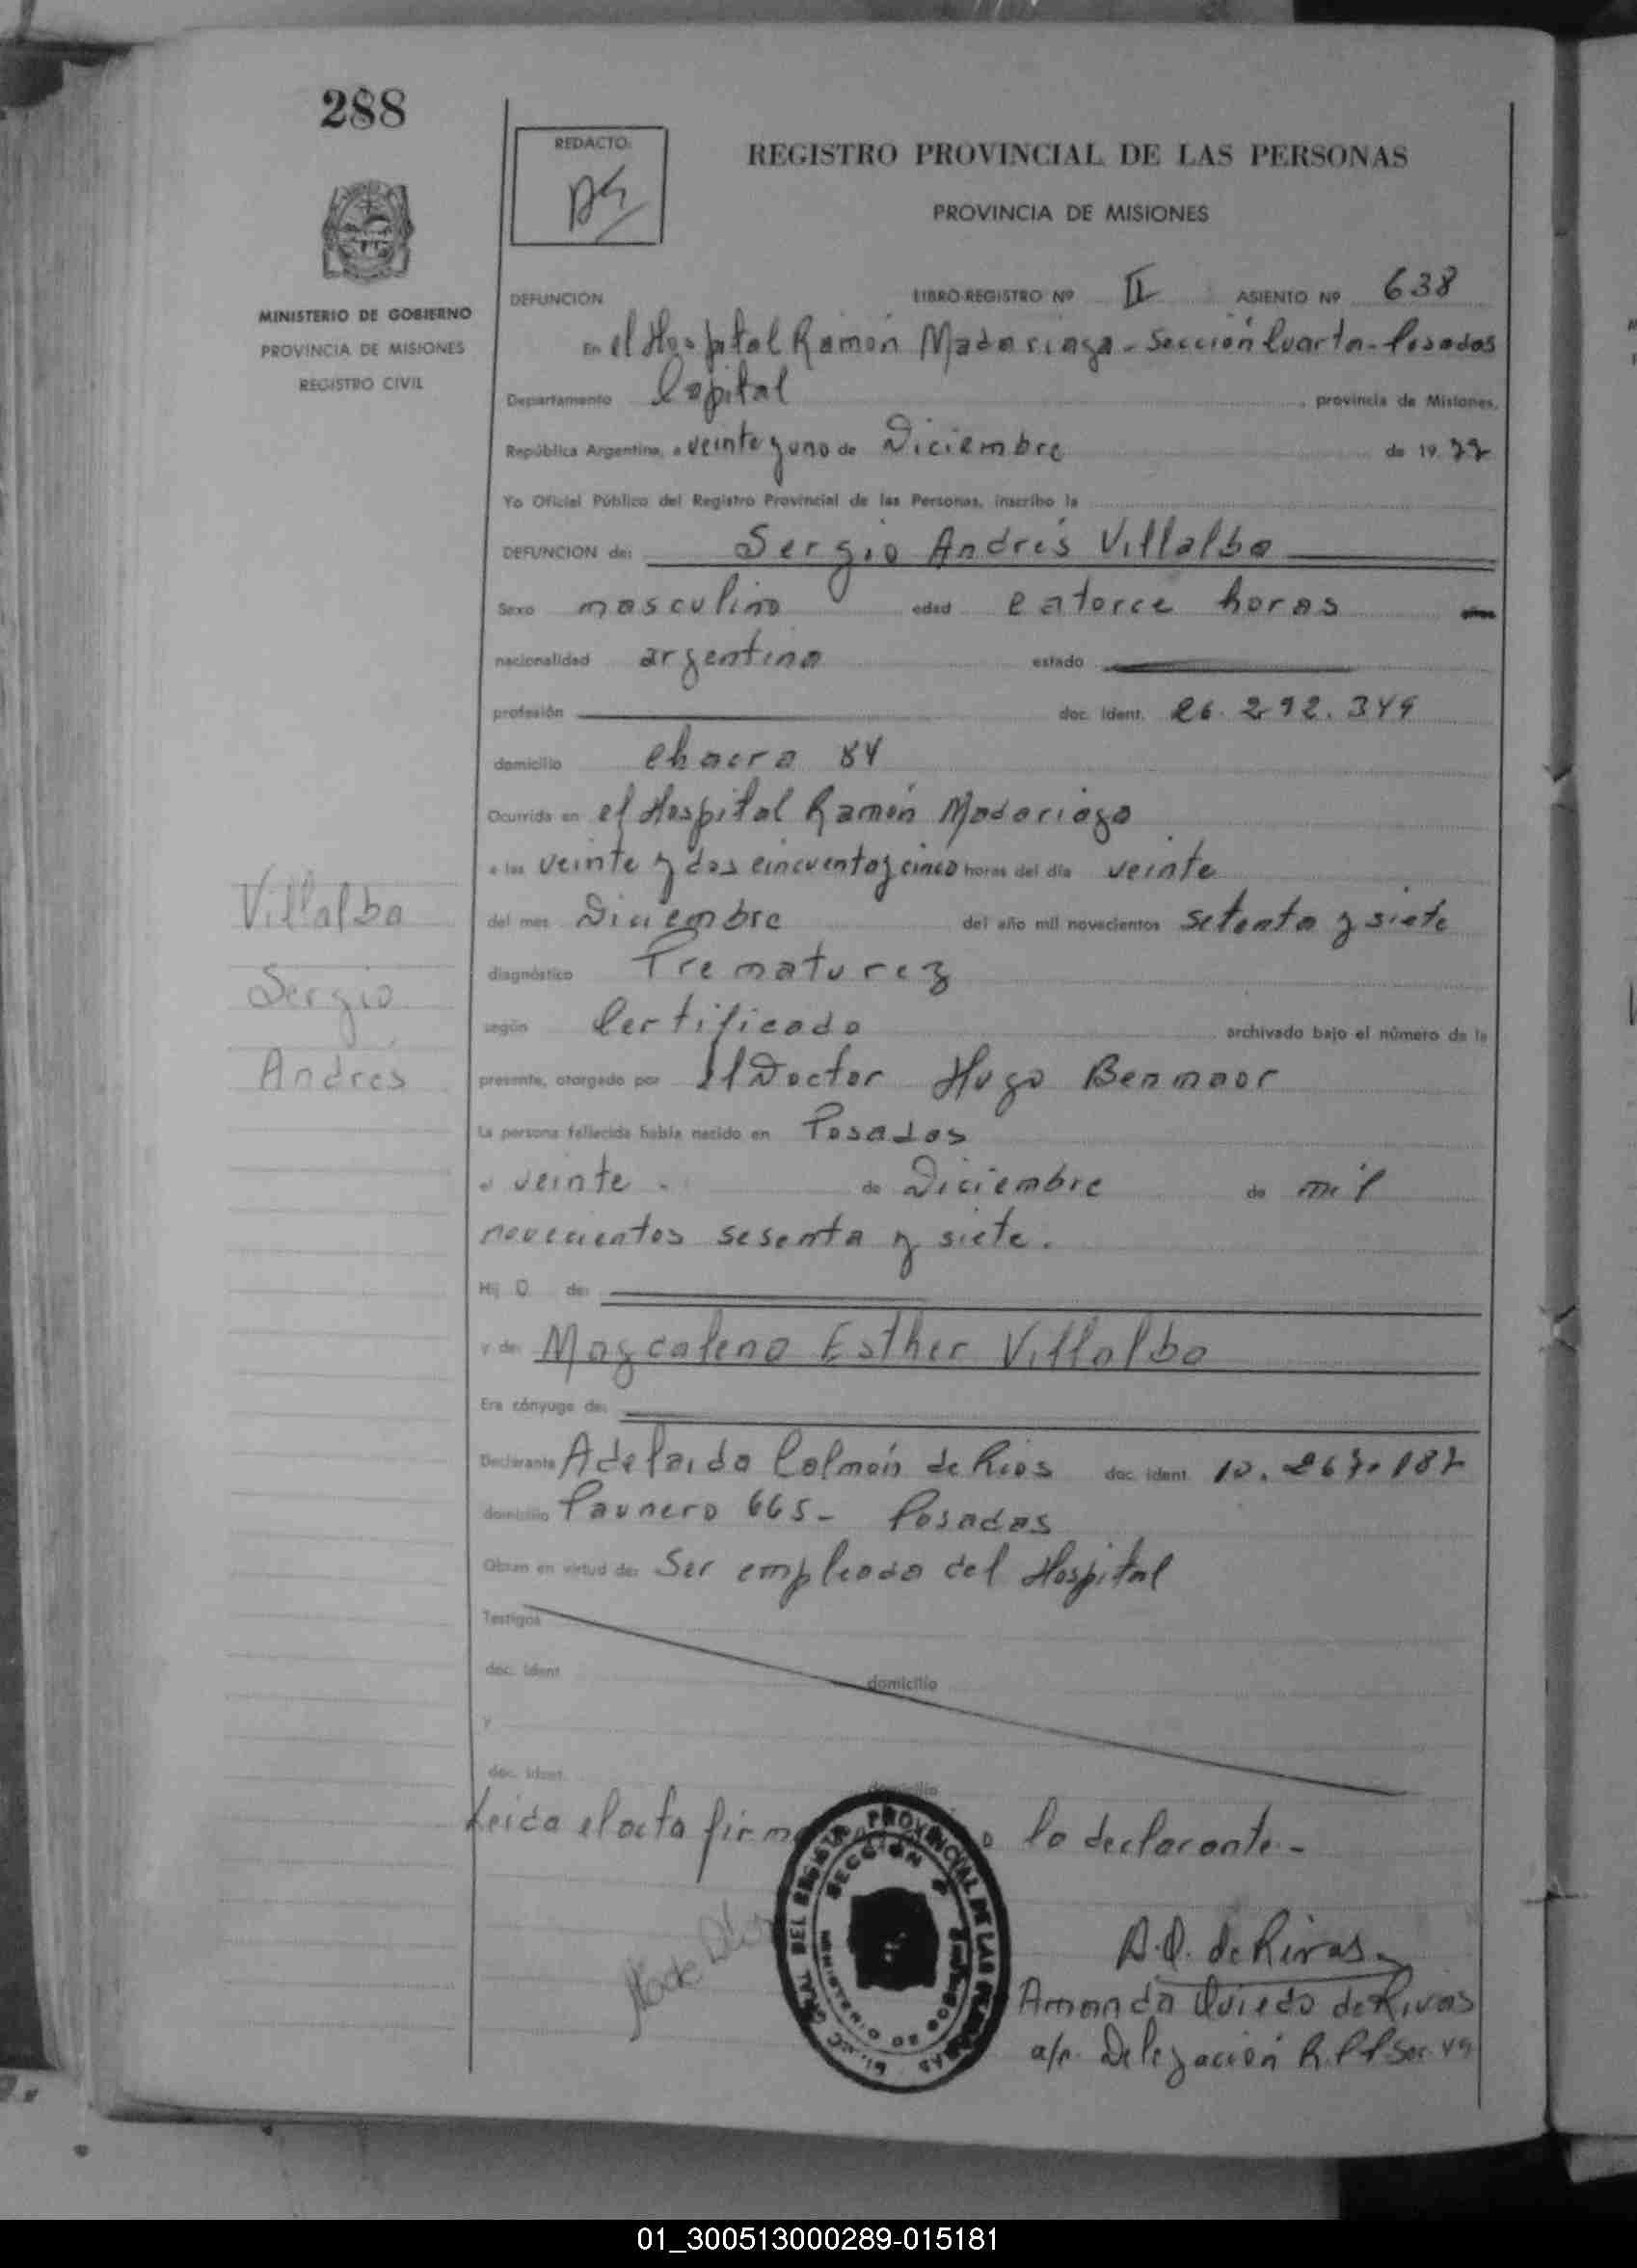 288
REDACTO:
REGISTRO PROVINCIAL DE LAS PERSONAS
PROVINCIA DE MISIONES
MINISTERIO DE GOBIERNO
PROVINCIA DE MISIONES
REGISTRO CIVIL
DEFUNCION LIBRO-REGISTRO Nº II ASIENTO Nº 638
En el Hospital Ramón Madariaga - Sección Cuarta - Posadas
Departamento Capital , provincia de Misiones,
República Argentina, a veinte y uno de Diciembre de 19 77
Yo Oficial Público del Registro Provincial de las Personas, inscribo la
DEFUNCION de: Sergio Andrés Villalba
Sexo masculino edad catorce horas
nacionalidad argentina estado
profesión doc. ident. 26.292.349
domicilio chacra 84
Ocurrida en el Hospital Ramón Madariaga
a las veinte y dos cincuenta y cinco horas del día veinte
del mes Diciembre del año mil novecientos setenta y siete
diagnóstico Prematurez
según Certificado archivado bajo el número de la
presente, otorgado por el Doctor Hugo Benmaor
La persona fallecida había nacido en Posadas
el veinte . de Diciembre de mil
novecientos sesenta y siete.
Hij o de:
y de: Magcalena Esther Villalba
Era cónyuge de:
Declarante Adelaida Colmán de Rios doc. ident. 10.267.187
domicilio Paunero 665 - Posadas
Obran en virtud de: Ser empleada del Hospital
Testigos
doc. ident. domicilio
y
doc. ident. domicilio
Leida el acta firm o la declarante. -
Villalba
Sergio
Andrés
DEL REGISTRO PROVINCIAL DE LAS PERSONAS
SECCION
A.O. de Rivas
Amanda Oviedo de Rivas
a/c. Delegación R.P.P Sec. 4ª
01_300513000289-015181